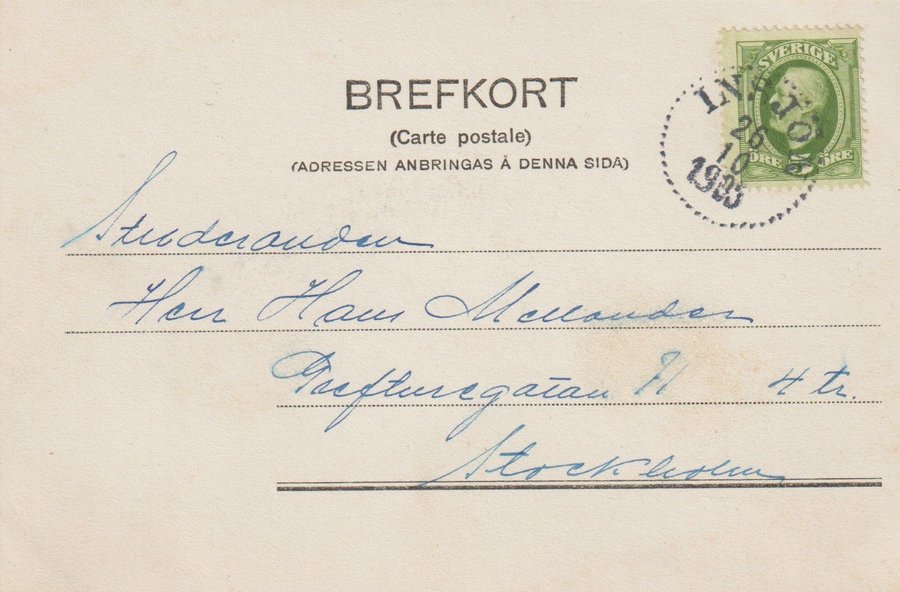 BREFKORT
(Carte postale)
(ADRESSEN ANBRINGAS Å DENNA SIDA)
SVERIGE
ÖRE 5 ÖRE
26
10
1903
Studeranden
Herr Hans Mellander
Grefturegatan 71 4 tr.
Stockholm